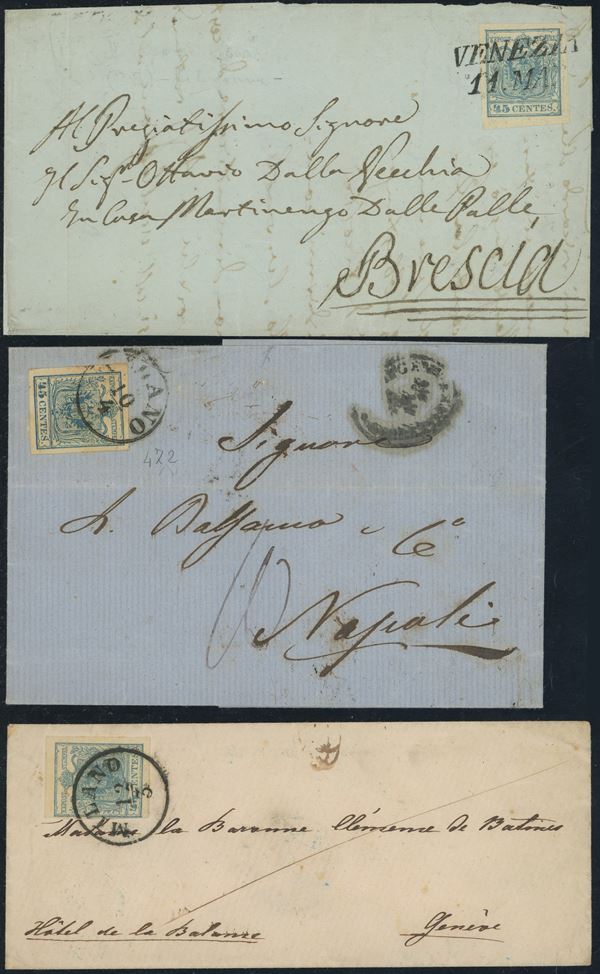 VENEZIA
11. MA
45 CENTES.
Al Pregiatissimo Signore
Il Sigr. Ottavio Dalla Vecchia
In Casa Martinengo Dalle Palle,
Brescia
MILANO
10
4
45 CENTES.
422
Signore
Napoli
MILANO
12
5
45 CENTES.
Madame la Baronne Clémence de Batines
Hôtel de la Balance
Genève